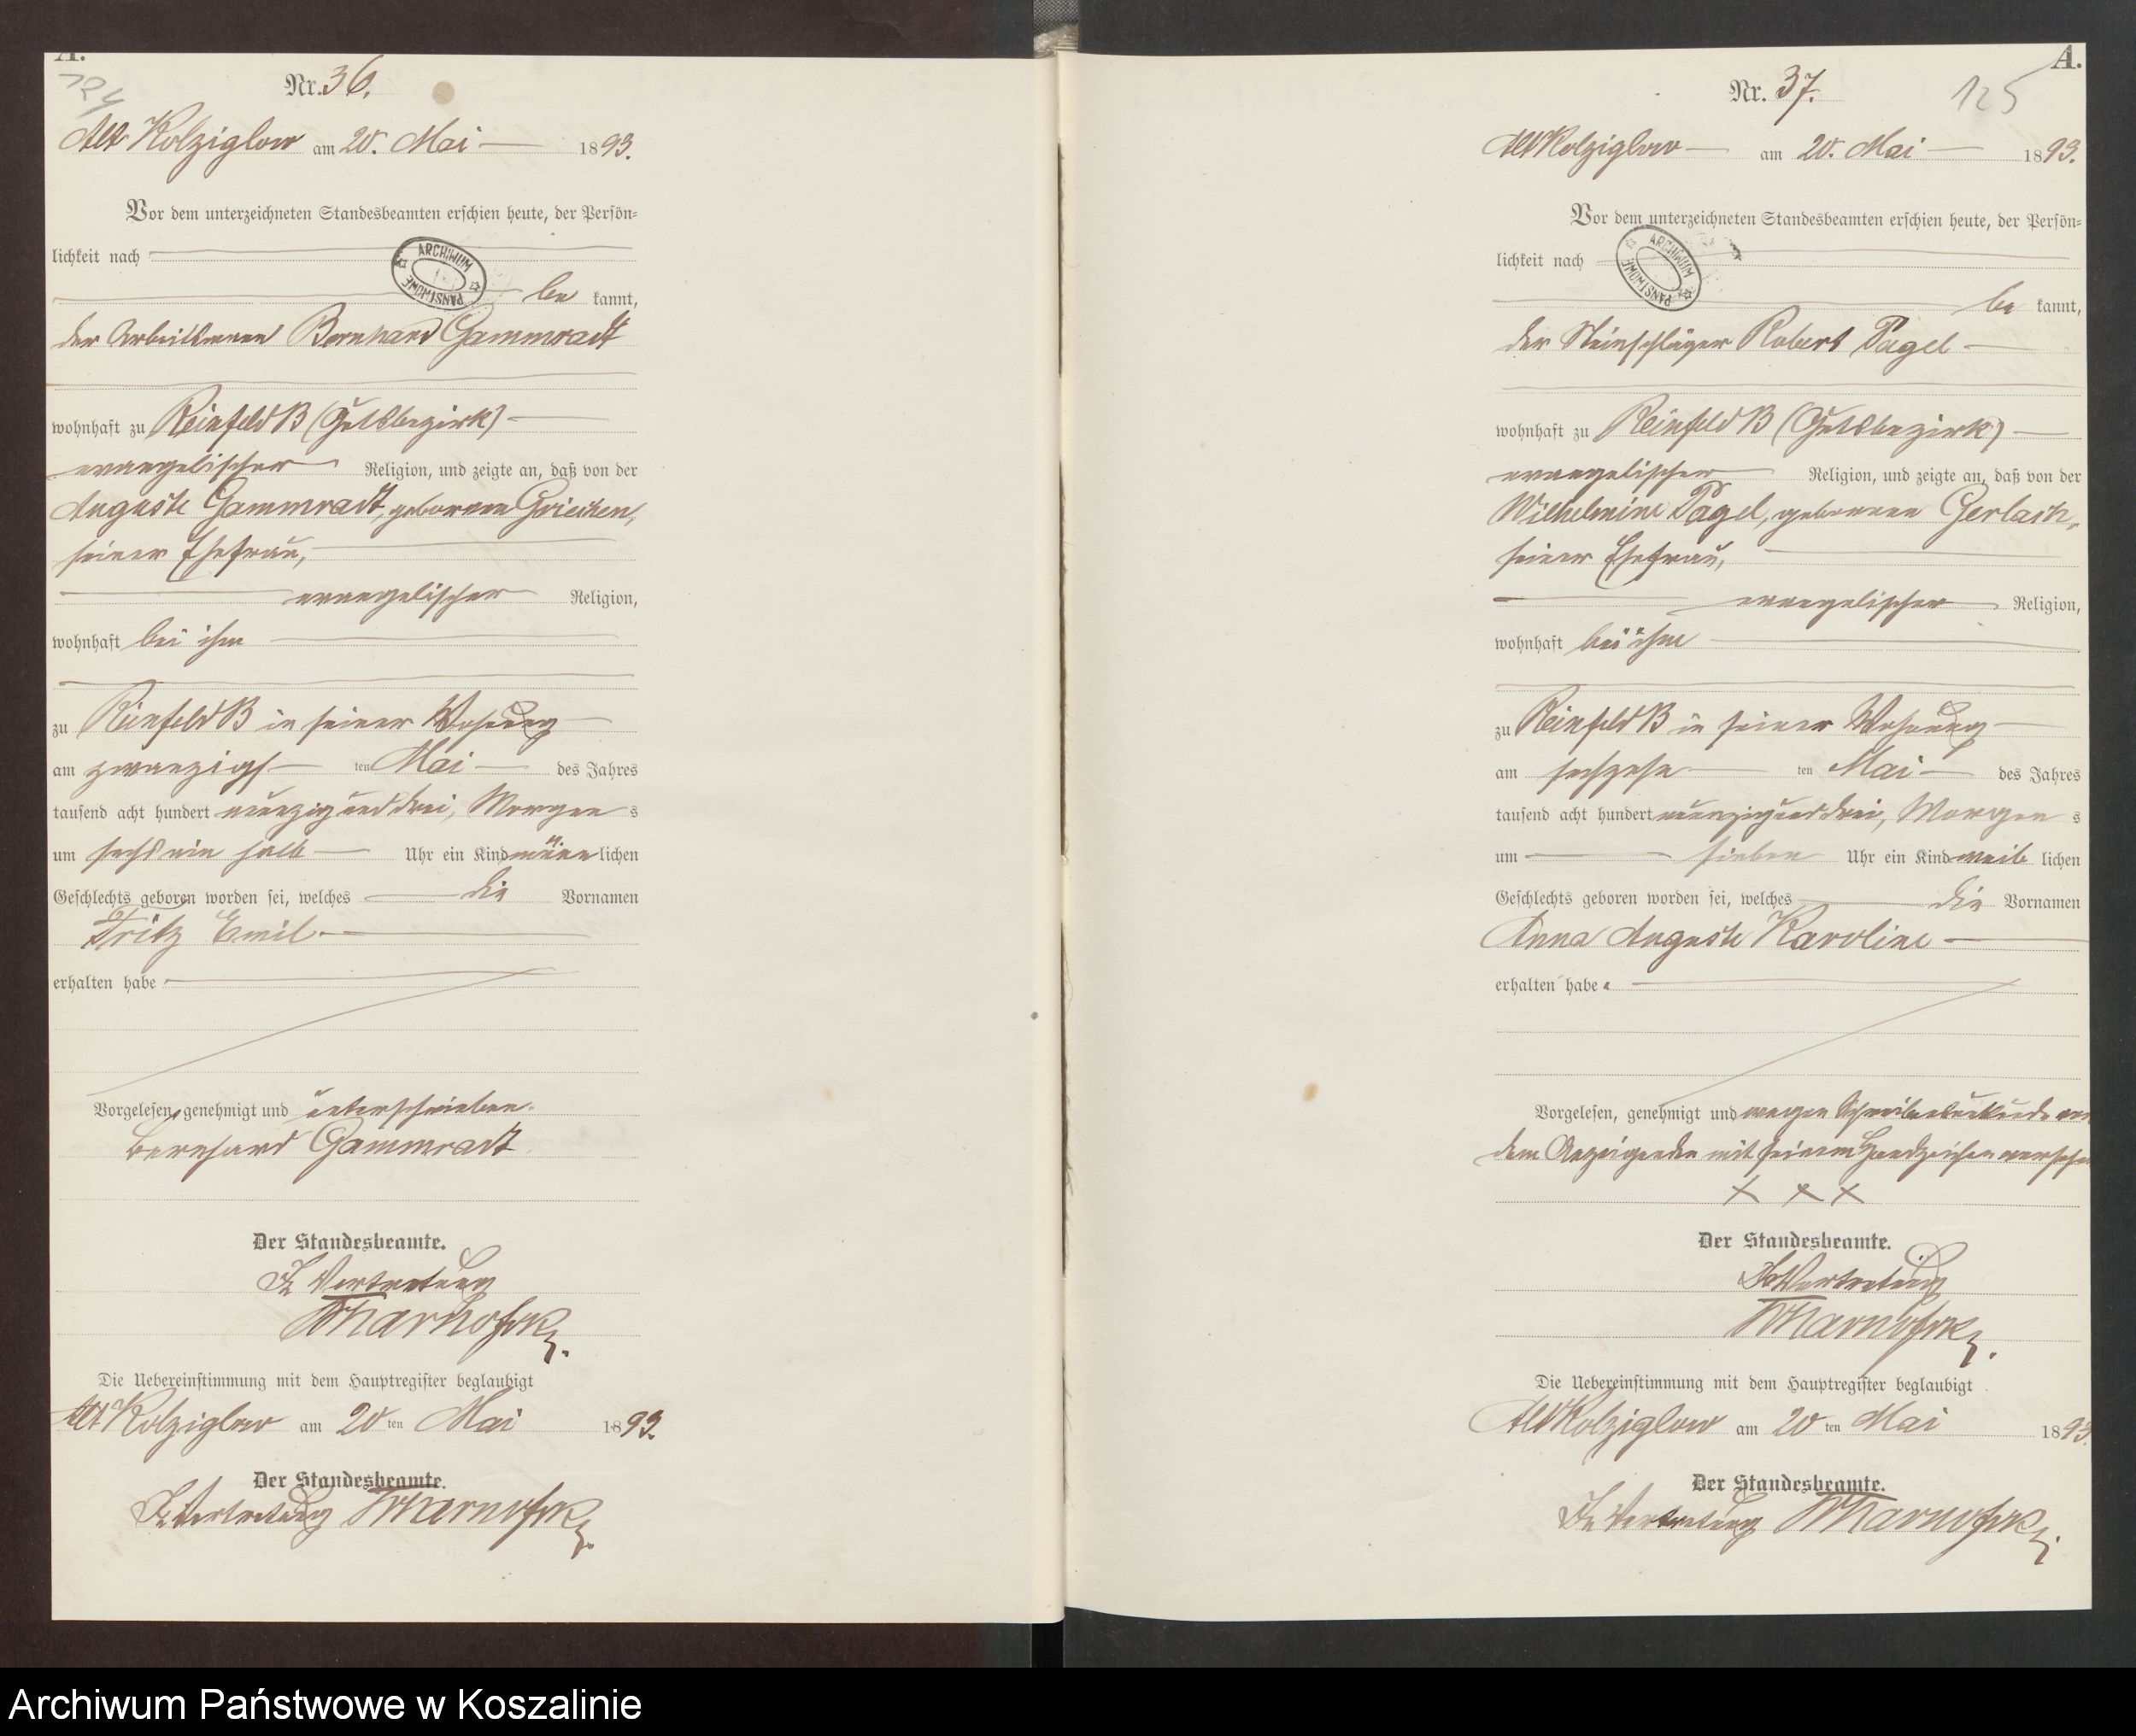 A.
124
Nr. 36.
Alt Kolziglow am 20. Mai 1893.
Vor dem unterzeichneten Standesbeamten erschien heute, der Persön-
lichkeit nach
ARCHIWUM PAŃSTWOWE
be kannt,
der Arbeitsmann Bernhard Gammradt
wohnhaft zu Reinfeld B (Gutsbezirk)
evangelischer Religion, und zeigte an, daß von der
Auguste Gammradt, geborenen
seiner Ehefrau,
evangelischer Religion,
wohnhaft bei ihm
zu Reinfeld B in seiner Wohnung
am zwanzigs ten Mai des Jahres
tausend acht hundert neunzig und drei, Morgen s
um sechs ein halb Uhr ein Kind männ lichen
Geschlechts geboren worden sei, welches die Vornamen
Fritz Emil
erhalten habe
Vorgelesen, genehmigt und unterschrieben.
Bernhard Gammradt
Der Standesbeamte.
In Vertretung
Die Uebereinstimmung mit dem Hauptregister beglaubigt
Alt Kolziglow am 20 ten Mai 1893.
Der Standesbeamte.
In Vertretung
A.
125
Nr. 37.
Alt Kolziglow am 20. Mai 1893.
Vor dem unterzeichneten Standesbeamten erschien heute, der Persön-
lichkeit nach
ARCHIWUM PAŃSTWOWE
be kannt,
der Steinschläger Robert Pagel
wohnhaft zu Reinfeld B (Gutsbezirk)
evangelischer Religion, und zeigte an, daß von der
Wilhelmine Pagel, geborenen Gerlach,
seiner Ehefrau,
evangelischer Religion,
wohnhaft bei ihm
zu Reinfeld B in seiner Wohnung
am sechzehn ten Mai des Jahres
tausend acht hundert neunzig und drei, Morgen s
um sieben Uhr ein Kind weib lichen
Geschlechts geboren worden sei, welches die Vornamen
Anna Auguste Karoline
erhalten habe
Vorgelesen, genehmigt und wegen Schreibensunkunde von
dem Anzeigenden mit seinem Handzeichen versehen
X X X
Der Standesbeamte.
In Vertretung
Die Uebereinstimmung mit dem Hauptregister beglaubigt
Alt Kolziglow am 20 ten Mai 1893.
Der Standesbeamte.
In Vertretung
Archiwum Państwowe w Koszalinie